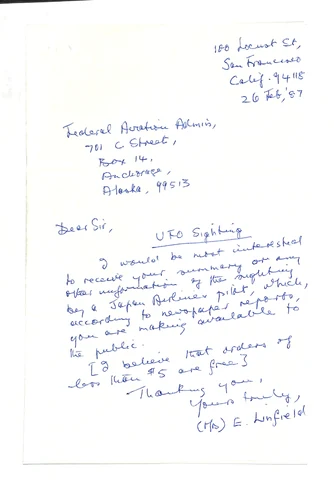 180 Locust St,
San Francisco
Calif. 94118
26 Feb, '87
Federal Aviation Admin,
701 C Street,
Box 14,
Anchorage,
Alaska, 99513
Dear Sir,
UFO Sighting
I would be most interested
to receive your summary or any
other information of the sighting
by a Japan Airlines pilot, which,
according to newspaper reports,
you are making available to
the public.
[I believe that orders of
less than $5 are free]
Thanking you,
Yours truly,
E. Linfield